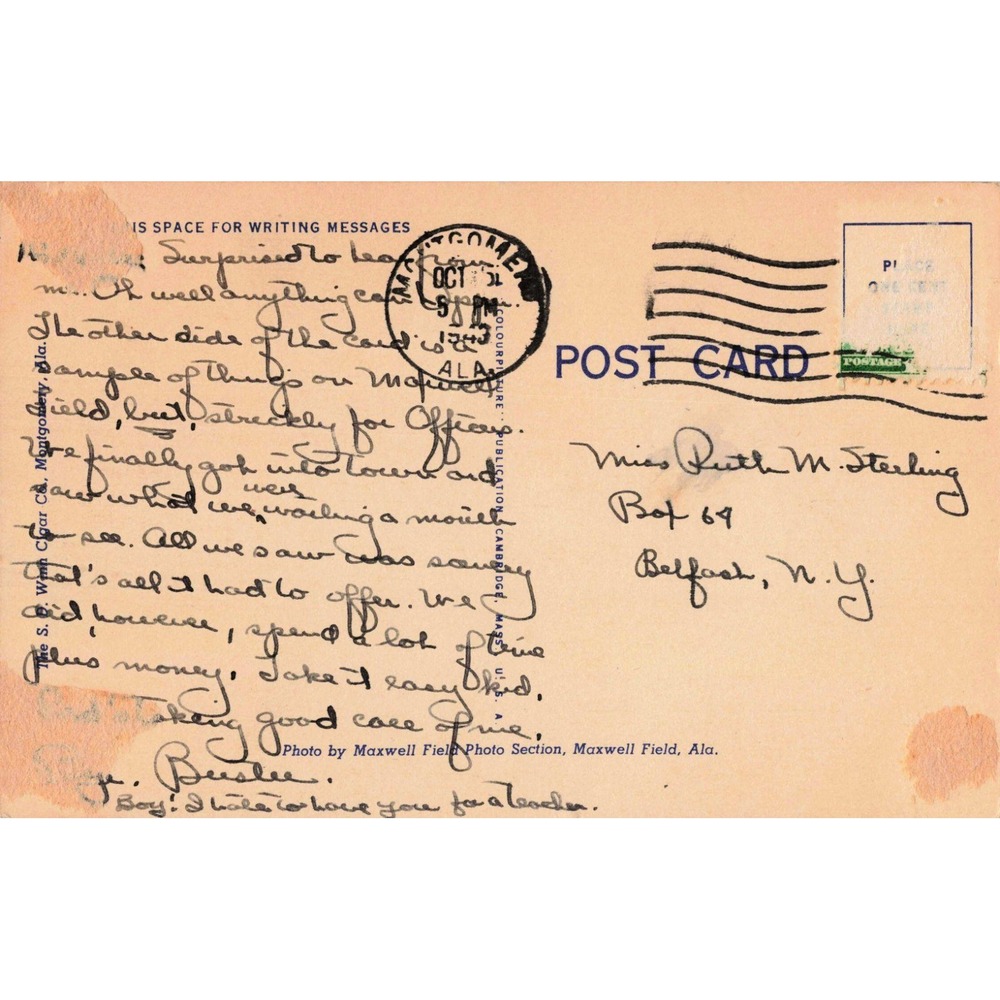 THIS SPACE FOR WRITING MESSAGES
Surprised to hear from
me. Oh well anything can happen.
The other side of the card is a
sample of things on Maxwell
Field, but, streckly for Officers.
We finally got into town and
saw what we were waiting a month
to see. All we saw was scenery
that's all it had to offer. We
did, however, spend a lot of time
plus money. Take it easy kid,
God's taking good care of me.
Buster.
Boy! I hate to have you for a teacher.
The S. D. Wenn Cigar Co., Montgomery, Ala.
"COLOURPICTURE" PUBLICATION, CAMBRIDGE, MASS., U. S. A.
Photo by Maxwell Field Photo Section, Maxwell Field, Ala.
MONTGOMERY
OCT
5 PM
1943
ALA.
POST CARD
PLACE
ONE CENT
STAMP
HERE
POSTAGE
Miss Ruth M. Sterling
Box 64
Belfast, N.Y.